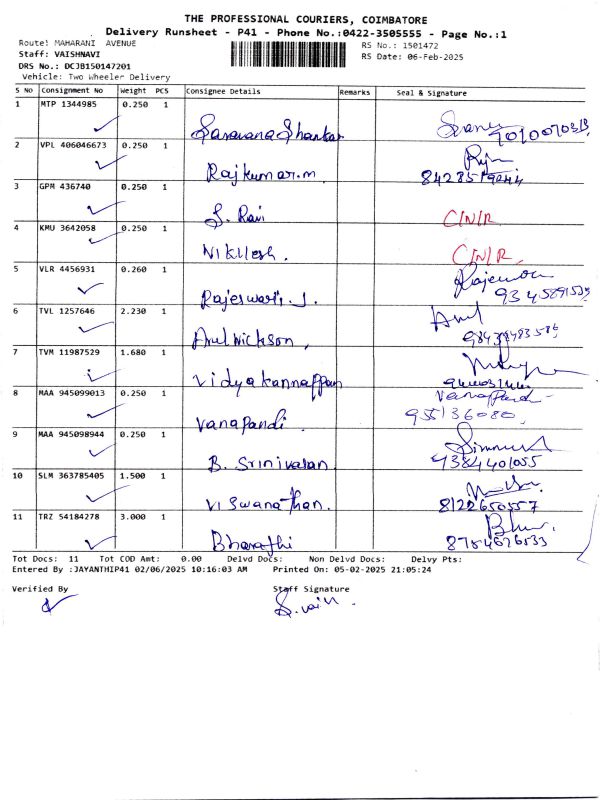 THE PROFESSIONAL COURIERS, COIMBATORE
Delivery Runsheet - P41 - Phone No.:0422-3505555 - Page No.:1
Route: MAHARANI AVENUE
RS No.: 1501472
Staff: VAISHNAVI
RS Date: 06-Feb-2025
DRS No.: DCJB150147201
Vehicle: Two Wheeler Delivery
S No Consignment No Weight PCS Consignee Details Remarks Seal & Signature
1 MTP 1344985 0.250 1
Saravana Shankar
2 VPL 406046673 0.250 1
Rajkumar.m
3 GPM 436740 0.250 1
S. Ravi C/N/R
4 KMU 3642058 0.250 1
Nikilesh. C/N/R.
5 VLR 4456931 0.260 1
Rajeswari. J.
6 TVL 1257646 2.230 1
Arul Nickson,
7 TVM 11987529 1.680 1
Vidyakannappan
8 MAA 945099013 0.250 1
Vanapandi.
9 MAA 945098944 0.250 1
B. Srinivasan 9384401055
10 SLM 363785405 1.500 1
Viswanathan. 8122650557
11 TRZ 54184278 3.000 1
Bharathi 8754676533
Tot Docs: 11 Tot COD Amt: 0.00 Delvd Docs: Non Delvd Docs: Delvy Pts:
Entered By :JAYANTHIP41 02/06/2025 10:16:03 AM Printed On: 05-02-2025 21:05:24
Verified By Staff Signature